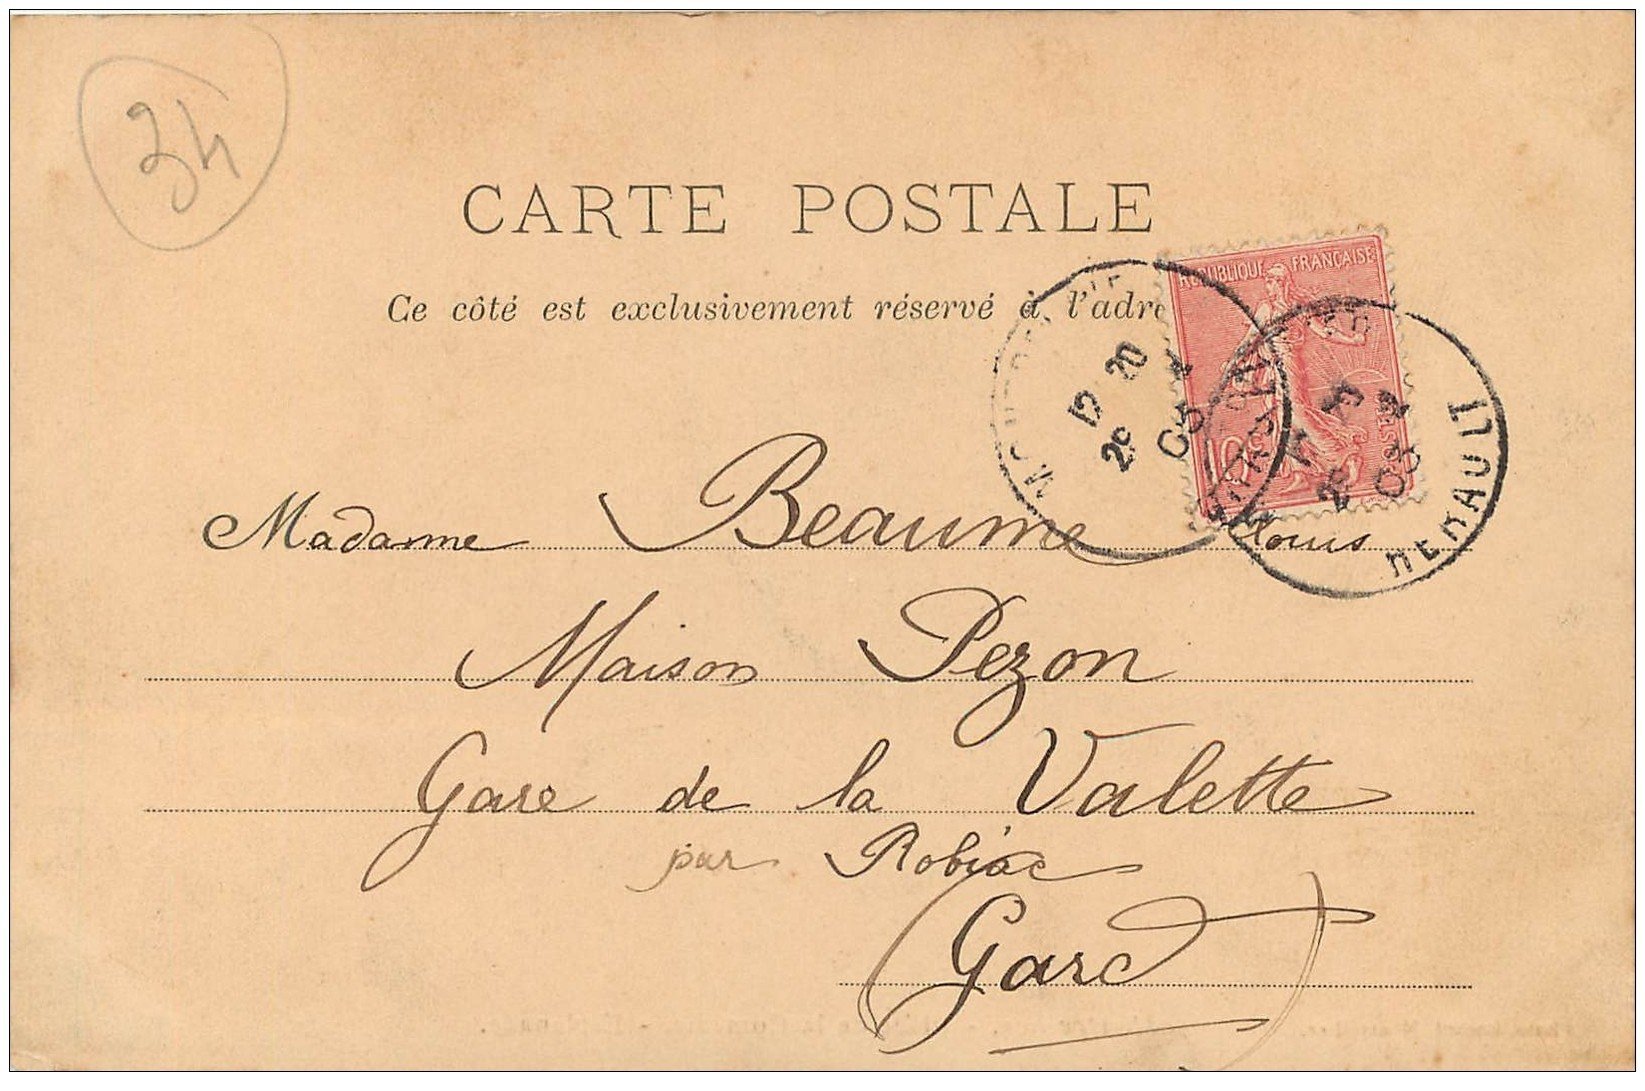 34
CARTE POSTALE
Ce côté est exclusivement réservé à l'adre
REPUBLIQUE FRANÇAISE
POSTES
12 20
29 4
05
HERAULT
Madame Beaume Louis
Maison Pezon
Gare de la Valette
par Robiac
Gard